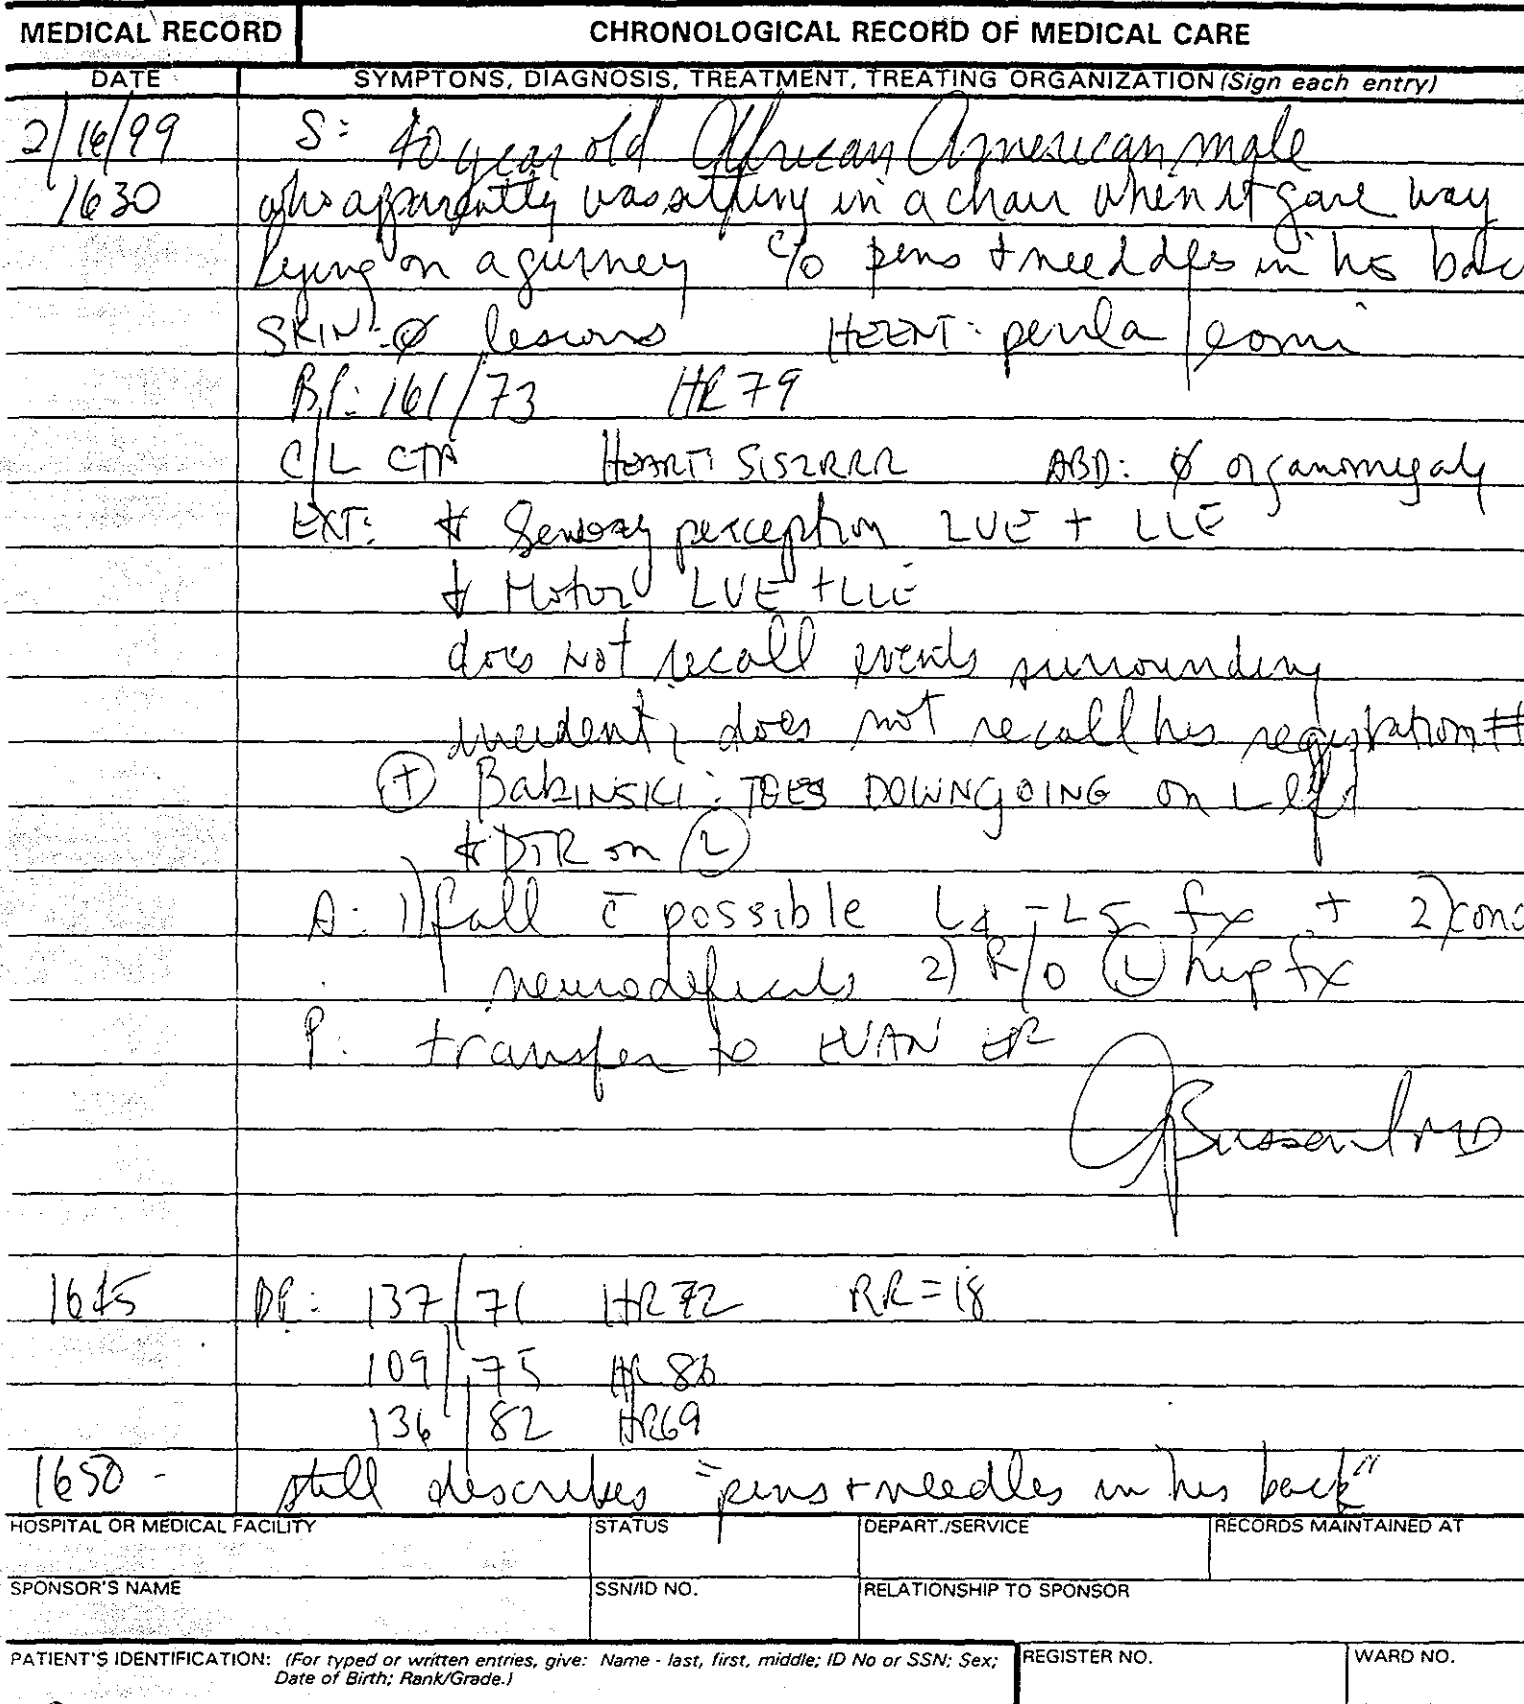 MEDICAL RECORD CHRONOLOGICAL RECORD OF MEDICAL CARE
DATE SYMPTONS, DIAGNOSIS, TREATMENT, TREATING ORGANIZATION (Sign each entry)
2/16/99 S: 40 year old African American male
1630 who apparently was sitting in a chair when it gave way
lying on a gurney c/o pins + needdles in his bac
SKIN: ∅ lesions HEENT: perrla/eomi
B.P: 161/73 HR 79
C/L CTA HEART: S1S2RRR ABD: ∅ organomegaly
EXT: ↓ Sensory perception LUE + LLE
↓ Motor LUE + LLE
does not recall events surrounding
incident; does not recall his registration #
⊕ BabINSKI: TOES DOWNGOING on Left
↓ DTR on Ⓛ
A: 1) fall c̄ possible L4-L5 fx + 2) conc
neurodeficits 2) R/O Ⓛ hip fx
P: transfer to ER
MD
1645 BP: 137/71 HR 72 RR = 18
109/75 HR 86
136/82 HR69
1650 - still describes "pins + needles in his back"
HOSPITAL OR MEDICAL FACILITY STATUS DEPART./SERVICE RECORDS MAINTAINED AT
SPONSOR'S NAME SSN/ID NO. RELATIONSHIP TO SPONSOR
PATIENT'S IDENTIFICATION: (For typed or written entries, give: Name - last, first, middle; ID No or SSN; Sex; REGISTER NO. WARD NO.
Date of Birth; Rank/Grade.)